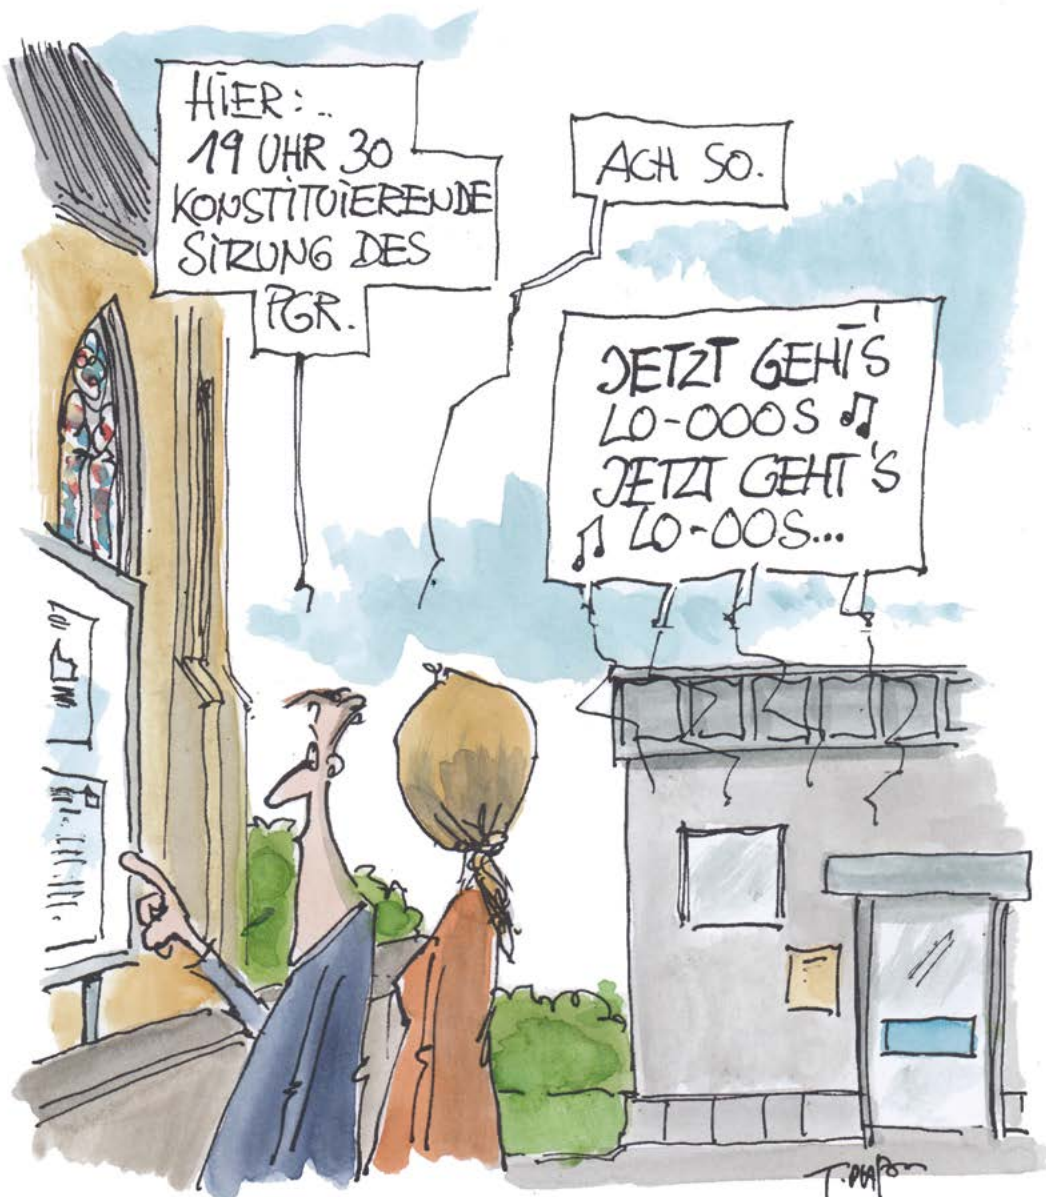 HIER:..
19 UHR 30
KONSTITUIERENDE
SITZUNG DES
PGR.
ACH SO.
JETZT GEHT'S
LO-OOOS ♫
JETZT GEHT'S
♫ LO-OOS...